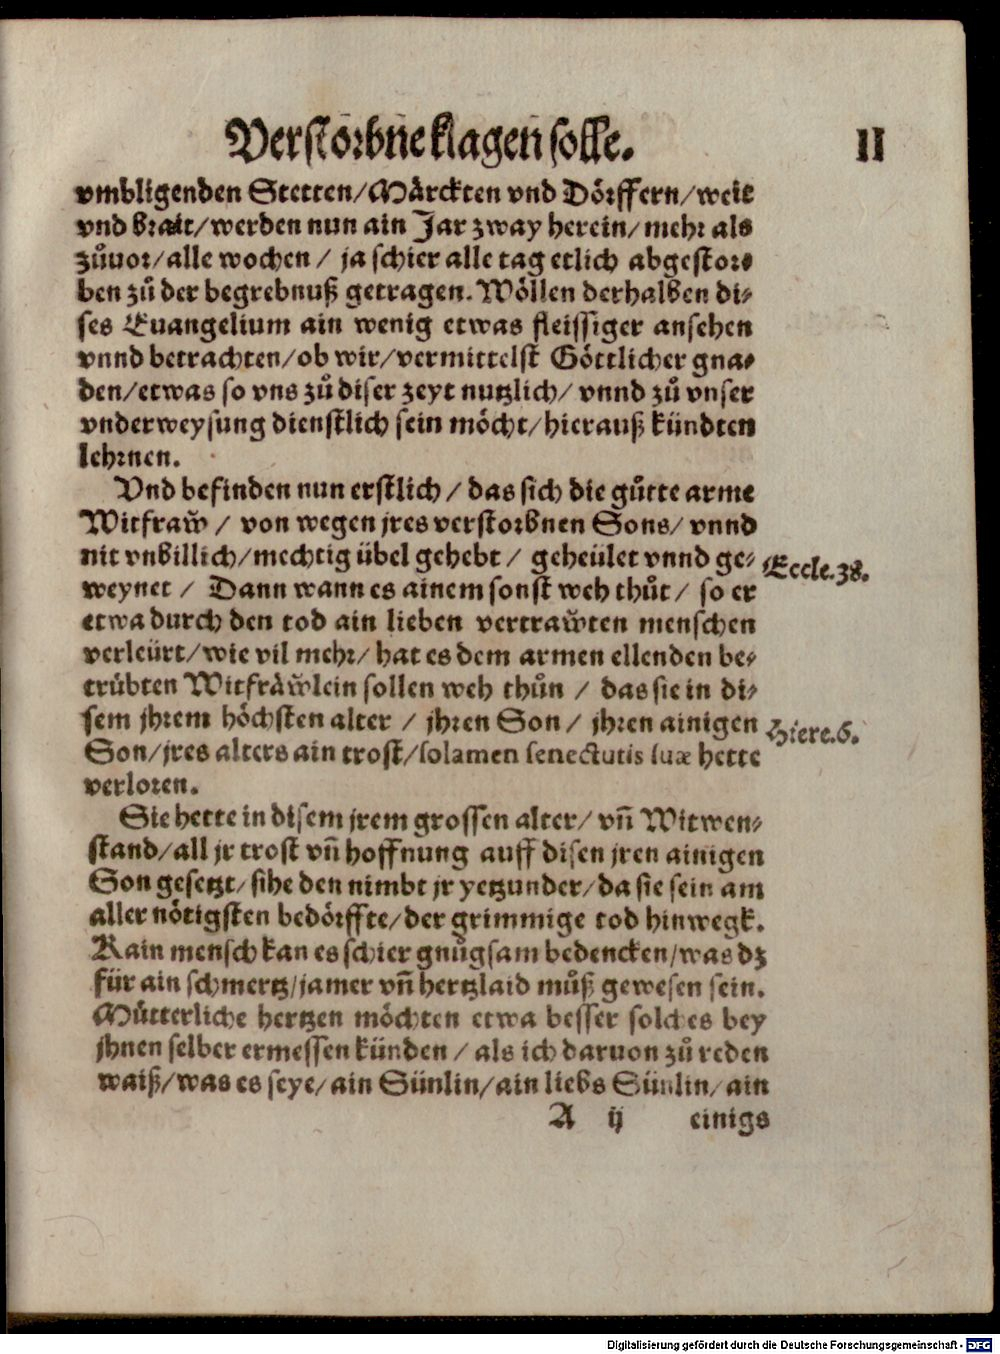 Verstorbne klagen solle. II
vmbligenden Stetten/Märckten vnd Dörffern/weit
vnd brait/werden nun ain Jar zway herein/ mehr als
zůuor/alle wochen / ja schier alle tag etlich abgestor⸗
ben zů der begrebnuß getragen. Wöllen derhalben di⸗
ses Euangelium ain wenig etwas fleissiger ansehen
vnnd betrachten/ob wir/vermittelst Göttlicher gna⸗
den/etwas so vns zů diser zeyt nutzlich/ vnnd zů vnser
vnderweysung dienstlich sein möcht/hierauß kündten
lehrnen.
Vnd befinden nun erstlich / das sich die gůtte arme
Witfraw̆ / von wegen jres verstorbnen Sons/ vnnd
nit vnbillich/mechtig übel gehebt / geheület vnnd ge⸗
Eccle.38.
weynet / Dann wann es ainem sonst weh thůt / so er
etwa durch den tod ain lieben vertraw̆ten menschen
verleürt/wie vil mehr/ hat es dem armen ellenden be⸗
trübten Witfräw̆lein sollen weh thůn / das sie in di⸗
sem jhrem höchsten alter / jhren Son / jhren ainigen
Hiere.6.
Son/jres alters ain trost/solamen senectutis suæ hette
verloren.
Sie hette in disem jrem grossen alter/ vñ Witwen⸗
stand/all jr trost vñ hoffnung auff disen jren ainigen
Son gesetzt/ sihe den nimbt jr yetzunder/da sie sein am
aller nötigsten bedörffte/der grimmige tod hinwegk.
Kain mensch kan es schier gnůgsam bedencken/was dz
für ain schmertz/jamer vñ hertzlaid můß gewesen sein.
Mütterliche hertzen möchten etwa besser solches bey
jhnen selber ermessen künden / als ich daruon zů reden
waiß/was es seye/ain Sünlin/ain liebs Sünlin/ain
A ij einigs
Digitalisierung gefördert durch die Deutsche Forschungsgemeinschaft - DFG